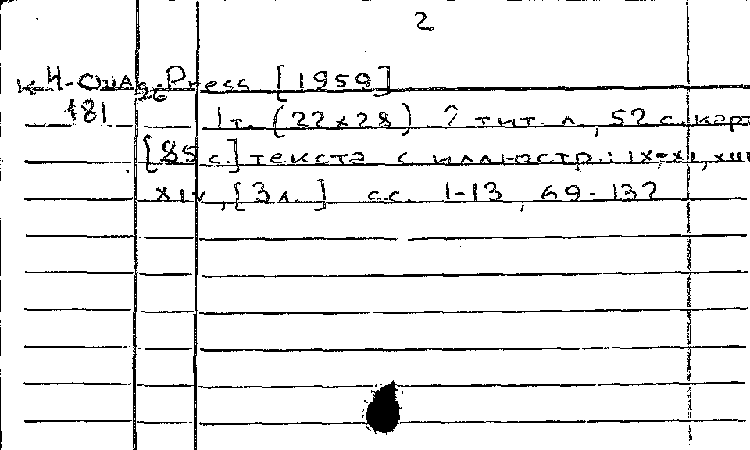 2
Press [1959]
181
1 т. (22x28) 2 тит. л., 52 с. карт
[85 с.] текста с иллюстр.: IX-XI, XIII
XIV, [3 л.] с.с. 1-13, 69-132